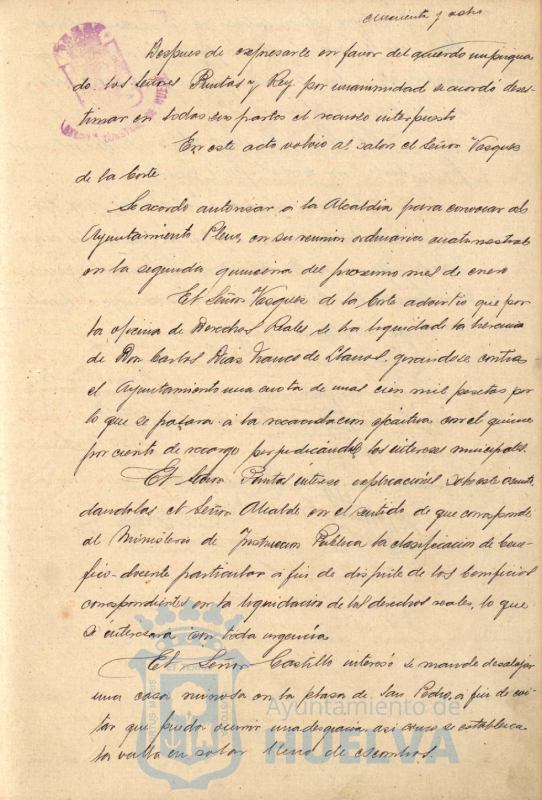 cincuenta y ocho
Despues de expresarse en favor del acuerdo impugna
do los señores Puntas y Rey por unanimidad se acordó deses-
timar en todas sus partes el recurso interpuesto
En este acto volvio al salon el Señor Vasquez
de la Corte
Se acordo autorisar á la Alcaldia para convocar al
Ayuntamiento Pleno, en su reunion ordinaria cuatrimestral
en la segunda quincena del proximo mes de enero
El Señor Vasquez de la Corte advirtio que por
la oficina de Derechos Reales se ha liquidado la herencia
de Don Carlos Dias Franco de Llanos, girandose contra
el Ayuntamiento una cuota de unas cien mil pesetas por
lo que se pasara á la recaudacion ejecutiva con el quince
por ciento de recargo perjudicando los intereses municipales.
El Señor Puntas intereso explicaciones sobre este asunto
dandolas el Señor Alcalde en el sentido de que corresponde
al Ministerio de Instruccion Publica la clasificacion de bene-
fico-docente particular á fin de disfrute de los beneficios
correspondientes en la liquidacion de los derechos reales, lo que
se interesara con toda urgencia
El Señor Castillo interesó se mande desalojar
una casa ruinosa en la plasa de San Pedro, á fin de evi-
tar que pueda ocurrir una desgracia asi como se establezca
la valla en solar lleno de escombros.
Ayuntamiento de
HUELVA